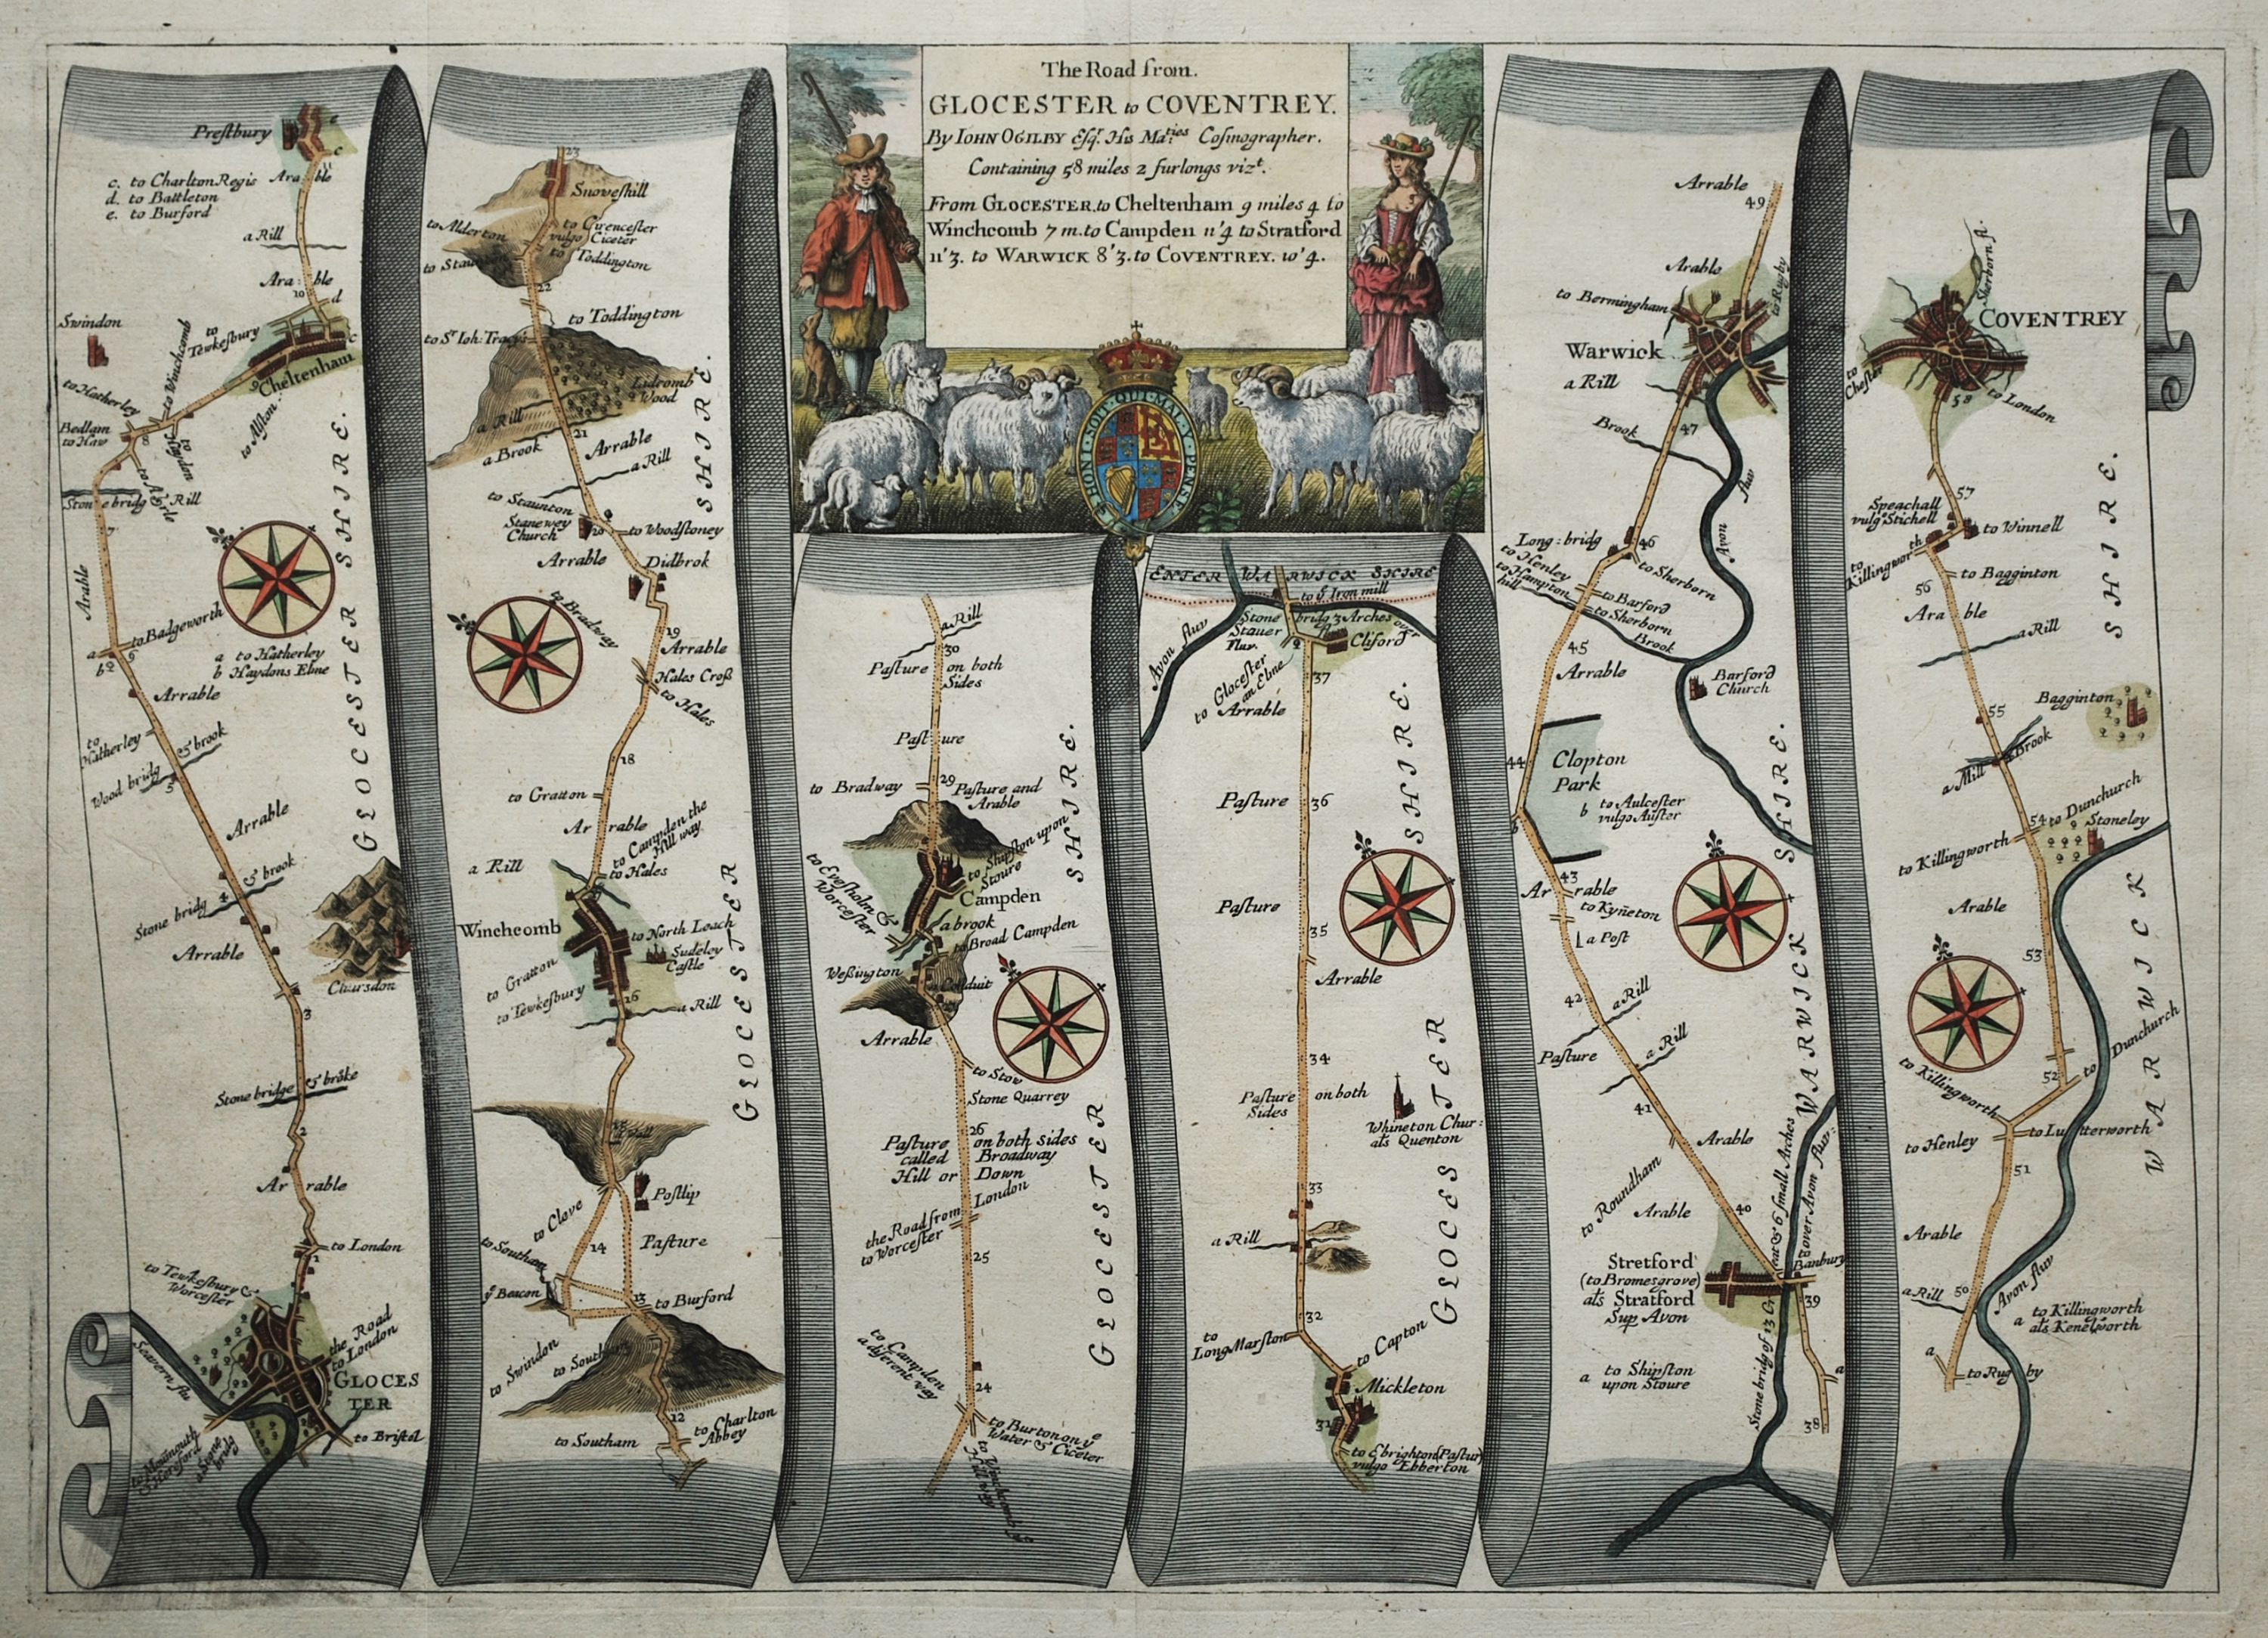 The Road from.
GLOCESTER to COVENTREY.
By IOHN OGILBY Esqr. His Maties Cosmographer.
Containing 58 miles 2 furlongs vizt.
From GLOCESTER, to Cheltenham 9 miles 4 to
Winchcomb 7 m. to Campden 11'4 to Stratford
11'3. to WARWICK 8'3. to COVENTREY. 10'4.
HONI·SOIT·QUI·MAL·Y·PENSE
Prestbury
e
c
11
c. to Charlton Regis
Ara ble
d. to Battleton
e. to Burford
a Rill
Ara: ble
10
d
Swindon
to Tewkesbury
to Winchcomb
c
Cheltenham
9
to Hatherley
to Alston
Bedlam
to Hav
8
to Haydon
Stone bridg & Rill
7
Arable
to Badgeworth
a
6
b
a to Hatherley
b Haydons Elme
Arrable
to Hatherley
Wood bridg & brook
5
Arrable
GLOCESTER SHIRE.
Stone bridg & brook
4
Arrable
Churson
3
Stone bridge & broke
2
Ar rable
to London
1
to Tewkesbury & Worcester
the Road to London
GLOCES
TER
Seavern flu
to Bristol
to Monmouth & Hereford
a Stone bridg
23
Snoveshill
to Alderton
to Cirencester
vulgo Ciceter
to Toddington
22
to Toddington
to Sr. Ioh: Tracys
Lidcomb
Wood
a Rill
21
a Brook
Arrable
a Rill
to Staunton
Stanewey
Church
20
to Woodstoney
Arrable
Didbrok
to Bradway
19
Arrable
Hales Cross
to Hales
18
to Gratton
Ar rable
to Campden the Hill way
a Rill
to Hales
Winchcomb
to North Leach
Sudeley
Castle
to Gratton
to Tewkesbury
16
a Rill
GLOCESTER SHIRE.
15
Postlip
to Cleve
14
Pasture
to Southam
ye Beacon
13
to Burford
to Swindon
to Southam
12
to Charlton
Abbey
to Southam
a Rill
30
Pasture on both
Sides
Past ure
to Bradway
29
Pasture and
Arable
to Shipston upon Stoure
to Evesholm & Worcester
Campden
a brook
to Broad Campden
Wessington
a Conduit
Arrable
to Stow
Stone Quarrey
26
Pasture on both sides
called Broadway
Hill or Down
London
the Road from
to Worcester
25
to Campden
a diferent way
24
to Burton on ye
Water & Ciceter
to Winchcomb ye Hill way
GLOCESTER SHIRE.
ENTER WARWICK SHIRE
to ye Iron mill
Stone bridg 3 Arches over
Stauer
fluv.
Cliford
Avon fluv
to Glocester
an Elme
37
Arrable
Pasture
36
Pasture
35
Arrable
34
Pasture on both
Sides
Whineton Chur:
als Quenton
33
a Rill
32
to
Long Marston
to Capton
Mickleton
31
to Ebrighton (Pastur)
vulgo Ebberton
GLOCESTER SHIRE.
Arrable
49
Arable
to Bermingham
to Rugby
Warwick
a Rill
Brook
47
Avon fluv
Long: bridg
46
to Henley
to Sherborn
to Hampton
hill
to Barford
to Sherborn
Brook
45
Arrable
Barford
Church
Clopton
Park
44
b to Aulcester
vulgo Auster
b
43
Ar rable
to Kyneton
a Post
42
a Rill
Pasture
a Rill
41
Arable
to Roundham
Arable
40
Stretford
(to Bromesgrove)
als Stratford
Sup Avon
Banbury
39
Stone bridg of 13 Great & 6 small Arches over Avon fluv.
a to Shipston
upon Stoure
a
38
WARWICK SHIRE.
Sherborn fl.
COVENTREY
to
Chester
58
to London
57
Speachall
vulgo Stichell
to Winnell
to Killingworth
56
to Bagginton
Ara ble
a Rill
55
Bagginton
a Mill
Brook
54
to Dunchurch
Stoneley
to Killingworth
Arable
53
52
to Dunchurch
to Killingworth
to Henley
to Lutterworth
51
Arable
Avon fluv
a Rill
50
to Killingworth
a als Kenelworth
a
to Rugby
WARWICK SHIRE.